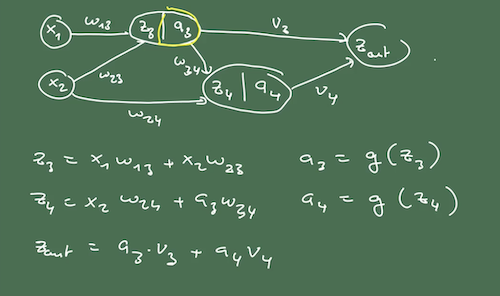 x₁ w₁₃ z₃ | a₃ v₃ z_out
x₂ w₂₃ w₃₄ z₄ | a₄ v₄
w₂₄
z₃ = x₁ w₁₃ + x₂ w₂₃ a₃ = g (z₃)
z₄ = x₂ w₂₄ + a₃ w₃₄ a₄ = g (z₄)
z_out = a₃ · v₃ + a₄ v₄